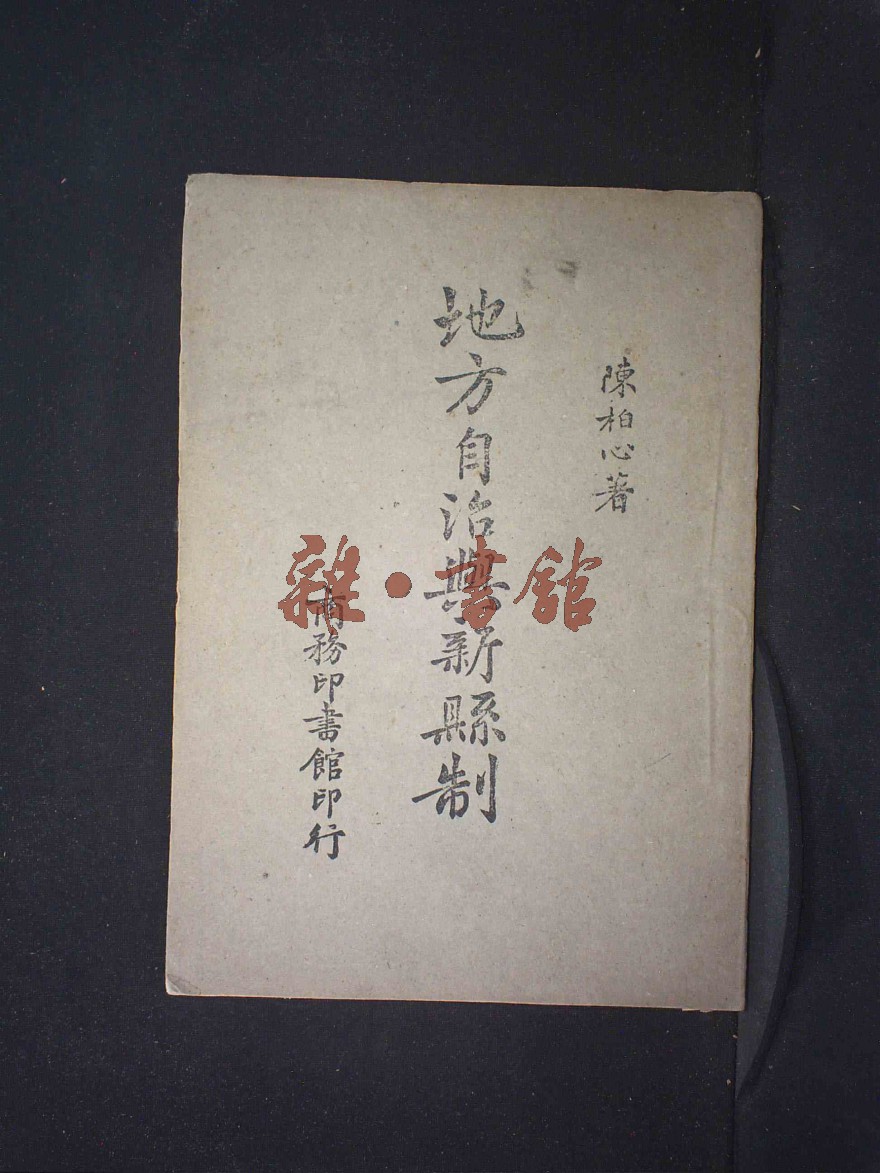 陳柏心著
地方自治與新縣制
商務印書館印行
雜·書館